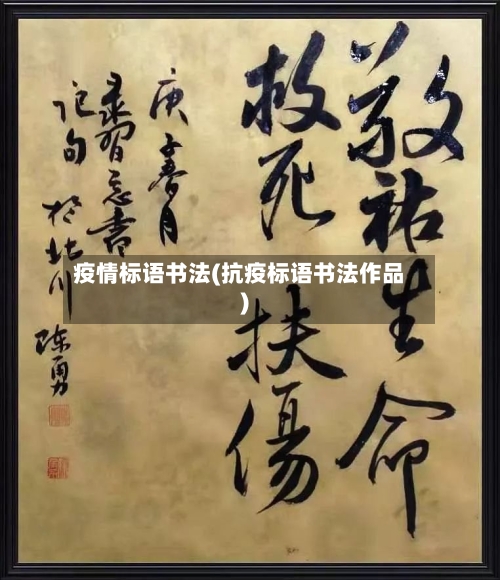 敬祐生命
救死扶傷
庚子春月
录習总書
记句於北川陈勇
疫情标语书法(抗疫标语书法作品
)